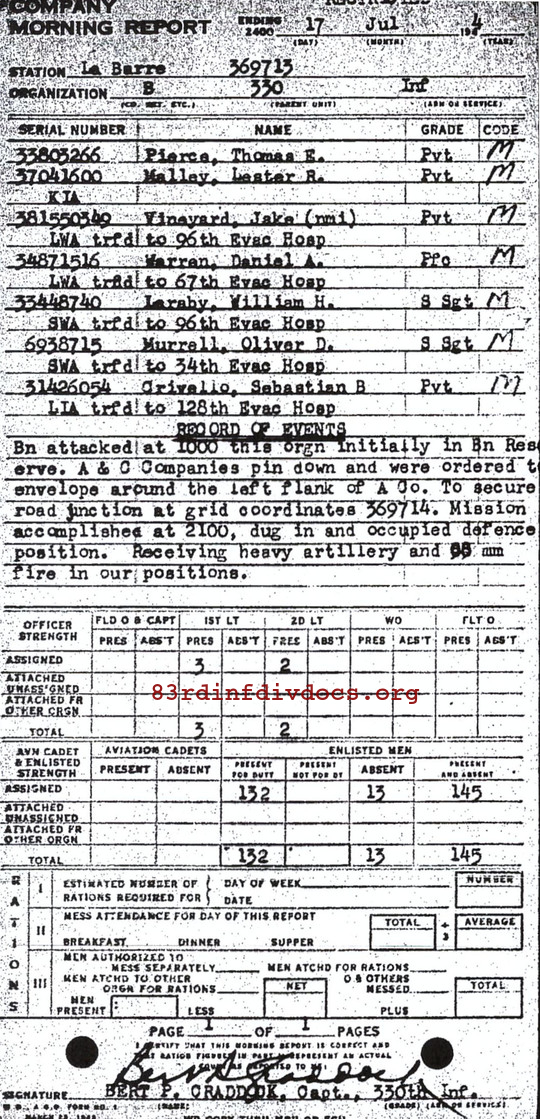 COMPANY
MORNING REPORT ENDING 2400 17 Jul 194 4
(DAY) (MONTH) (YEAR)
STATION La Barre 369713
ORGANIZATION B 330 Inf
(CO. DET. ETC.) (PARENT UNIT) (ARM OR SERVICE)
SERIAL NUMBER NAME GRADE CODE
33803266 Pierce, Thomas E. Pvt M
37041600 Malley, Lester R. Pvt M
KIA
381550349 Vineyard, Jake (nmi) Pvt M
LWA trfd to 96th Evac Hosp
34871516 Warren, Daniel A. Pfc M
LWA trfd to 67th Evac Hosp
33448740 Laraby, William H. S Sgt M
SWA trfd to 96th Evac Hosp
6938715 Murrell, Oliver D. S Sgt M
SWA trfd to 34th Evac Hosp
31426054 Crivello, Sebastian B Pvt M
LIA trfd to 128th Evac Hosp
RECORD OF EVENTS
Bn attacked at 1000 this orgn initially in Bn Res
erve. A & C Companies pin down and were ordered to
envelope around the left flank of A Co. To secure
road junction at grid coordinates 369714. Mission
accomplished at 2100, dug in and occupied defence
position. Receiving heavy artillery and 88 mm
fire in our positions.
OFFICER STRENGTH FLD O & CAPT 1ST LT 2D LT WO FLT O
PRES ABS'T PRES ABS'T PRES ABS'T PRES ABS'T PRES ABS'T
ASSIGNED 3 2
ATTACHED UNASSIGNED
83rdinfdivdocs.org
ATTACHED FR OTHER ORGN
TOTAL 3 2
AVN CADET & ENLISTED STRENGTH AVIATION CADETS ENLISTED MEN
PRESENT ABSENT PRESENT FOR DUTY PRESENT NOT FOR DY ABSENT PRESENT AND ABSENT
ASSIGNED 132 13 145
ATTACHED UNASSIGNED
ATTACHED FR OTHER ORGN
TOTAL 132 13 145
RATIONS
I ESTIMATED NUMBER OF RATIONS REQUIRED FOR { DAY OF WEEK DATE NUMBER
II MESS ATTENDANCE FOR DAY OF THIS REPORT TOTAL ÷ 3 AVERAGE
BREAKFAST DINNER SUPPER
III MEN AUTHORIZED TO MESS SEPARATELY MEN ATCHD FOR RATIONS
MEN ATCHD TO OTHER ORGN FOR RATIONS NET O & OTHERS MESSED TOTAL
MEN PRESENT LESS PLUS
PAGE 1 OF 1 PAGES
I CERTIFY THAT THIS MORNING REPORT IS CORRECT AND
Bert P. Craddock
SIGNATURE BERT P. CRADDOCK, Capt., 330th Inf
(NAME) (GRADE) (ARM OR SERVICE)
W. D., A. G. O. FORM NO. 1